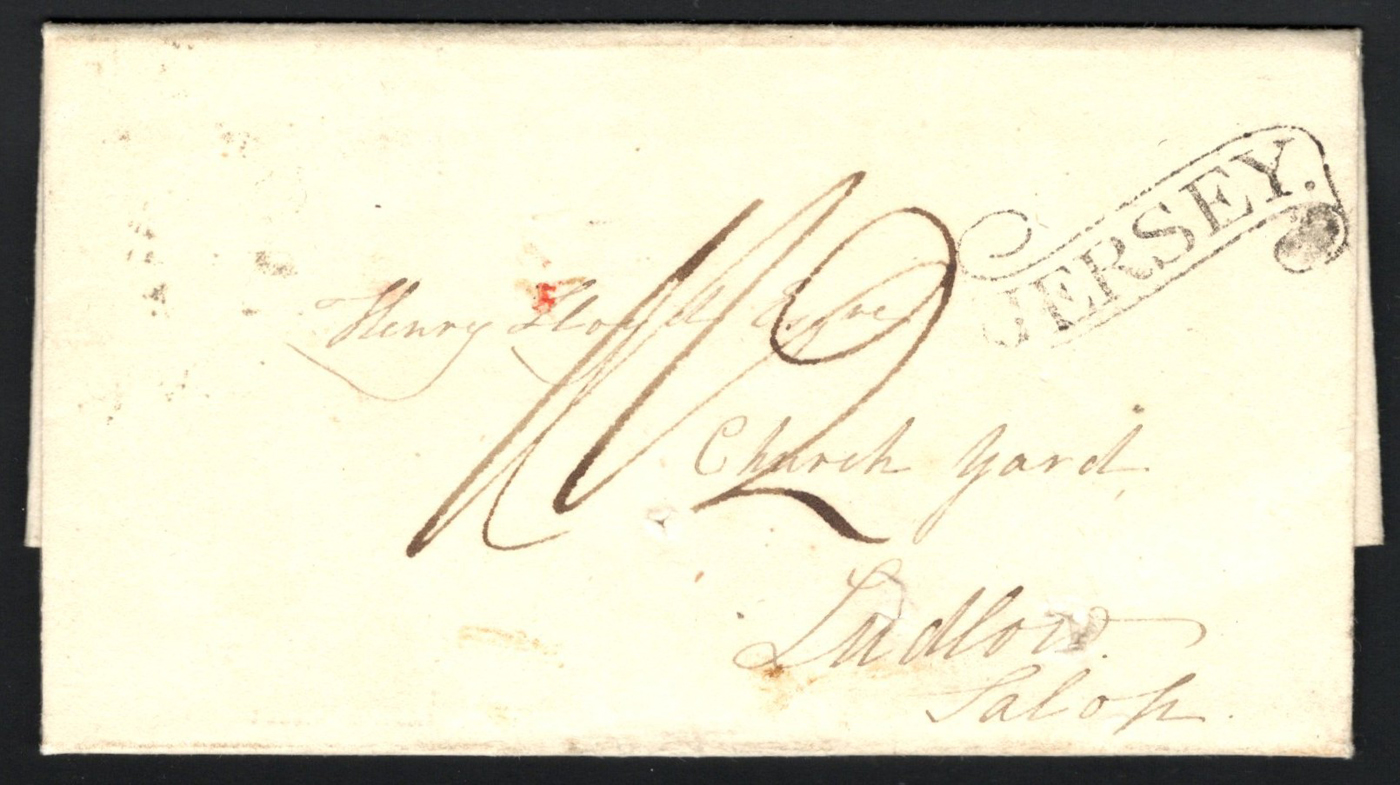 JERSEY.
Henry Lloyd Esqre
Church Yard
Ludlow.
Salop.